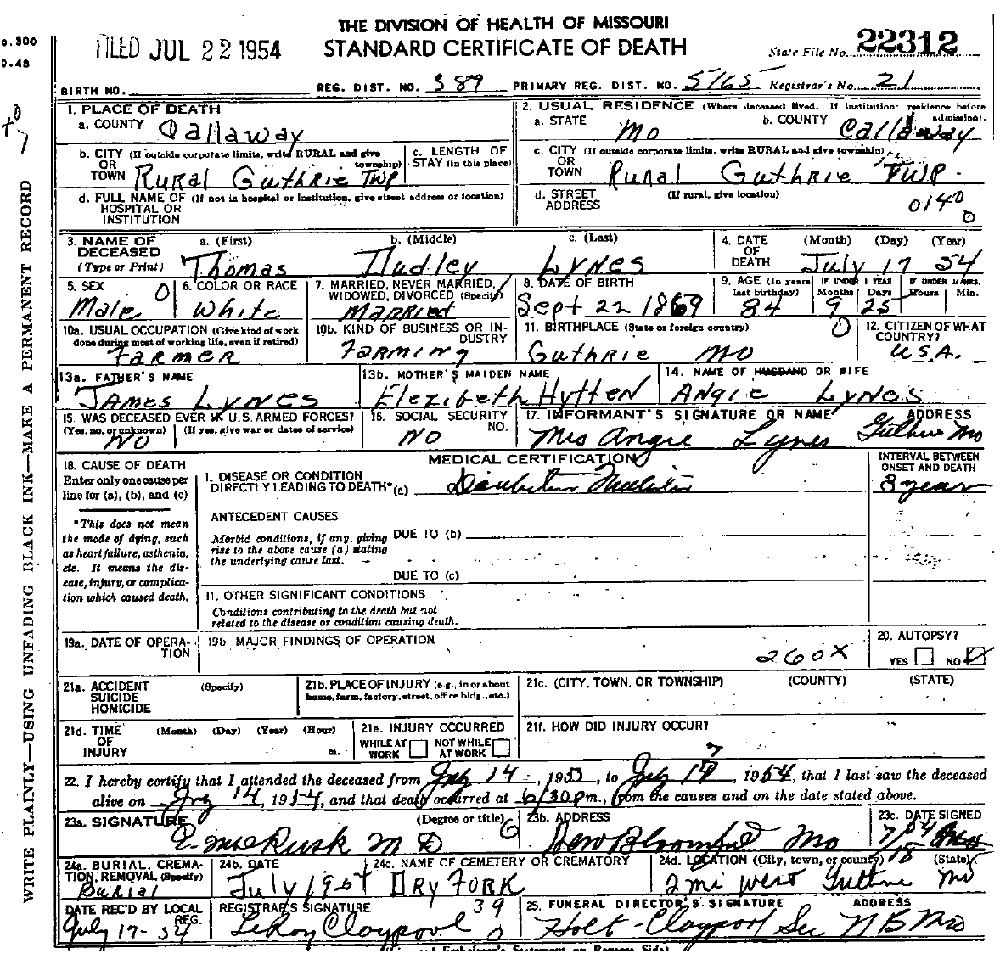 THE DIVISION OF HEALTH OF MISSOURI
FILED JUL 22 1954 STANDARD CERTIFICATE OF DEATH State File No. 22312
BIRTH NO. REG. DIST. NO. 389 PRIMARY REG. DIST. NO. 5765 Registrar's No. 21
1. PLACE OF DEATH
a. COUNTY Callaway
2. USUAL RESIDENCE (Where deceased lived. If institution: residence before admission).
a. STATE Mo b. COUNTY Callaway
b. CITY (If outside corporate limits, write RURAL and give township)
OR
TOWN Rural Guthrie TWP
c. LENGTH OF STAY (in this place)
c. CITY (If outside corporate limits, write RURAL and give township)
OR
TOWN Rural Guthrie TWP.
d. FULL NAME OF (If not in hospital or institution, give street address or location)
HOSPITAL OR
INSTITUTION
d. STREET (If rural, give location)
ADDRESS
0140
0
3. NAME OF DECEASED
(Type or Print)
a. (First) Thomas
b. (Middle) Dudley
c. (Last) Lynes
4. DATE OF DEATH (Month) (Day) (Year)
July 17 54
5. SEX
Male
6. COLOR OR RACE
White
7. MARRIED, NEVER MARRIED, WIDOWED, DIVORCED (Specify)
Married
8. DATE OF BIRTH
Sept 22 1869
9. AGE (In years last birthday) IF UNDER 1 YEAR Months Days IF UNDER 24 HRS. Hours Min.
84 9 25
10a. USUAL OCCUPATION (Give kind of work done during most of working life, even if retired)
Farmer
10b. KIND OF BUSINESS OR INDUSTRY
Farming
11. BIRTHPLACE (State or foreign country)
Guthrie Mo
12. CITIZEN OF WHAT COUNTRY?
U.S.A.
13a. FATHER'S NAME
James Lynes
13b. MOTHER'S MAIDEN NAME
Elezibeth Hytten
14. NAME OF HUSBAND OR WIFE
Angie Lynes
15. WAS DECEASED EVER IN U.S. ARMED FORCES?
(Yes, no, or unknown) (If yes, give war or dates of service)
No
16. SOCIAL SECURITY NO.
No
17. INFORMANT'S SIGNATURE OR NAME ADDRESS
Mrs Angie Lynes Guthrie Mo
18. CAUSE OF DEATH
Enter only one cause per line for (a), (b), and (c)
*This does not mean the mode of dying, such as heart failure, asthenia, etc. It means the disease, injury, or complication which caused death.
MEDICAL CERTIFICATION
INTERVAL BETWEEN ONSET AND DEATH
I. DISEASE OR CONDITION
DIRECTLY LEADING TO DEATH*(a)
8 years
ANTECEDENT CAUSES
Morbid conditions, if any, giving rise to the above cause (a) stating the underlying cause last.
DUE TO (b)
DUE TO (c)
11. OTHER SIGNIFICANT CONDITIONS
Conditions contributing to the death but not related to the disease or condition causing death.
19a. DATE OF OPERATION
19b. MAJOR FINDINGS OF OPERATION
260X
20. AUTOPSY?
YES NO
21a. ACCIDENT SUICIDE HOMICIDE (Specify)
21b. PLACE OF INJURY (e.g., in or about home, farm, factory, street, office bldg., etc.)
21c. (CITY, TOWN, OR TOWNSHIP) (COUNTY) (STATE)
21d. TIME OF INJURY (Month) (Day) (Year) (Hour) m.
21e. INJURY OCCURRED
WHILE AT WORK NOT WHILE AT WORK
21f. HOW DID INJURY OCCUR?
22. I hereby certify that I attended the deceased from July 14, 1953, to July 17, 1954, that I last saw the deceased
alive on July 14, 1954, and that death occurred at 6/30 pm., from the causes and on the date stated above.
23a. SIGNATURE (Degree or title)
E. McRusk M D
23b. ADDRESS
New Bloomfield Mo
23c. DATE SIGNED
24a. BURIAL, CREMATION, REMOVAL (Specify)
Burial
24b. DATE
July 1954
24c. NAME OF CEMETERY OR CREMATORY
Dry Fork
24d. LOCATION (City, town, or county) (State)
2 mi west Guthrie Mo
DATE REC'D BY LOCAL REG.
July 17-54
REGISTRAR'S SIGNATURE 39
LeRoy Claypool 0
25. FUNERAL DIRECTOR'S SIGNATURE ADDRESS
Holt-Claypool N B Mo
WRITE PLAINLY—USING UNFADING BLACK INK—MAKE A PERMANENT RECORD